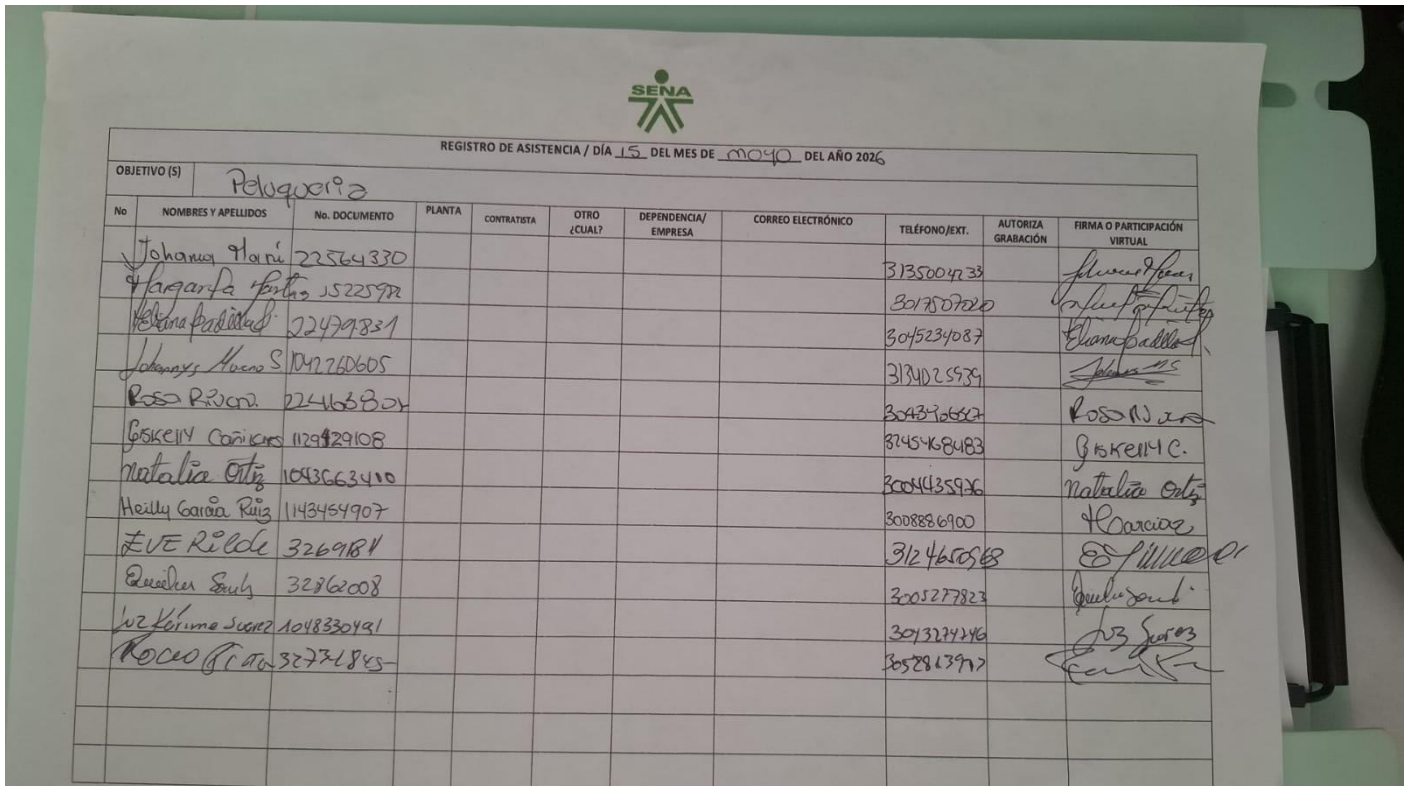 SENA
REGISTRO DE ASISTENCIA / DÍA 15 DEL MES DE mayo DEL AÑO 2026
OBJETIVO (S) Peluqueria
No NOMBRES Y APELLIDOS No. DOCUMENTO PLANTA CONTRATISTA OTRO ¿CUAL? DEPENDENCIA/ EMPRESA CORREO ELECTRÓNICO TELÉFONO/EXT. AUTORIZA GRABACIÓN FIRMA O PARTICIPACIÓN VIRTUAL
Johana 22564330 3135004233
Margarita 3017507020
Eliana Padilla 22479831 3045234087 Eliana Padilla
Johannys Moreno S 1042260605 3134025939
Rosa Rivera Rosa Rivera
Giskelly 1129529108 3245468483 Giskelly C.
Natalia Ortiz 1043663410 3004435926 Natalia Ortiz
Heilly Garcia Ruiz 1143454907 3008886900 HGarciaR
EVE 3124650568
32862008 3005277823
Luz Karime Suarez 1048330491 3043274246 Luz Suarez
Rocio